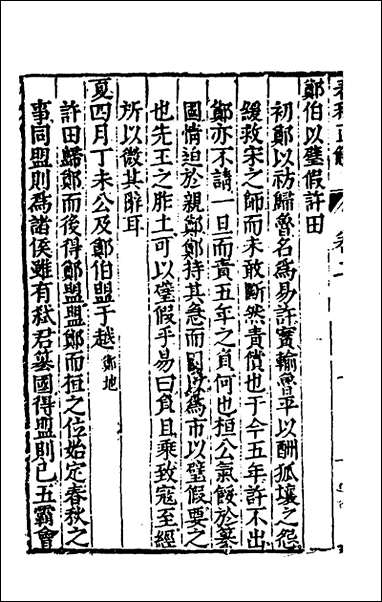 春秋正解 卷二
鄭伯以璧假許田
初鄭以祊歸魯名為易許實輸魯平以酬狐壤之怨
緩救宋之師而未敢斷然責償也于今五年許不出
鄭亦不請一旦而責五年之負何也桓公氣餒於篡
國情迫於親鄭鄭持其急而因以為市以璧假要之
也先王之胙土可以璧假乎易曰負且乘致寇至經
所以微其辭耳
夏四月丁未公及鄭伯盟于越鄭地
許田歸鄭而後得鄭盟盟鄭而桓之位始定春秋之
事同盟則為諸侯雖有弒君篡國得盟則已五霸會